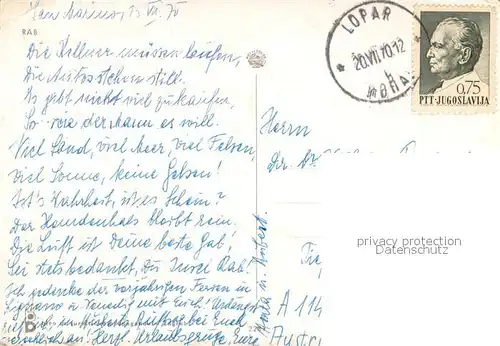 San Marino, 15. VII. 70
RAB
Die Kellner müssen laufen,
Die Autos stehen still.
Es gibt nicht viel zu kaufen,
So wie der Mann es will.
Viel Sand, viel Meer, viel Felsen,
Viel Sonne, keine Gelsen!
Ist's Wahrheit, ist es Schein?
Der Hemdenhals bleibt rein.
Die Luft ist Deine beste Gab',
Sei stets bedankt, Du Insel Rab!
Ich gedenke der vorjährigen Ferien in
Lignano u. Venedig mit Euch!
bei Euch
Herzl. Urlaubsgrüße, Eure
u. Hubert
LOPAR
20.VII.70.12
b
ЛОПАР
0,75
PTT-JUGOSLAVIJA
Herrn
Dir. Dr.
A 114
Austri
privacy protection
Datenschutz